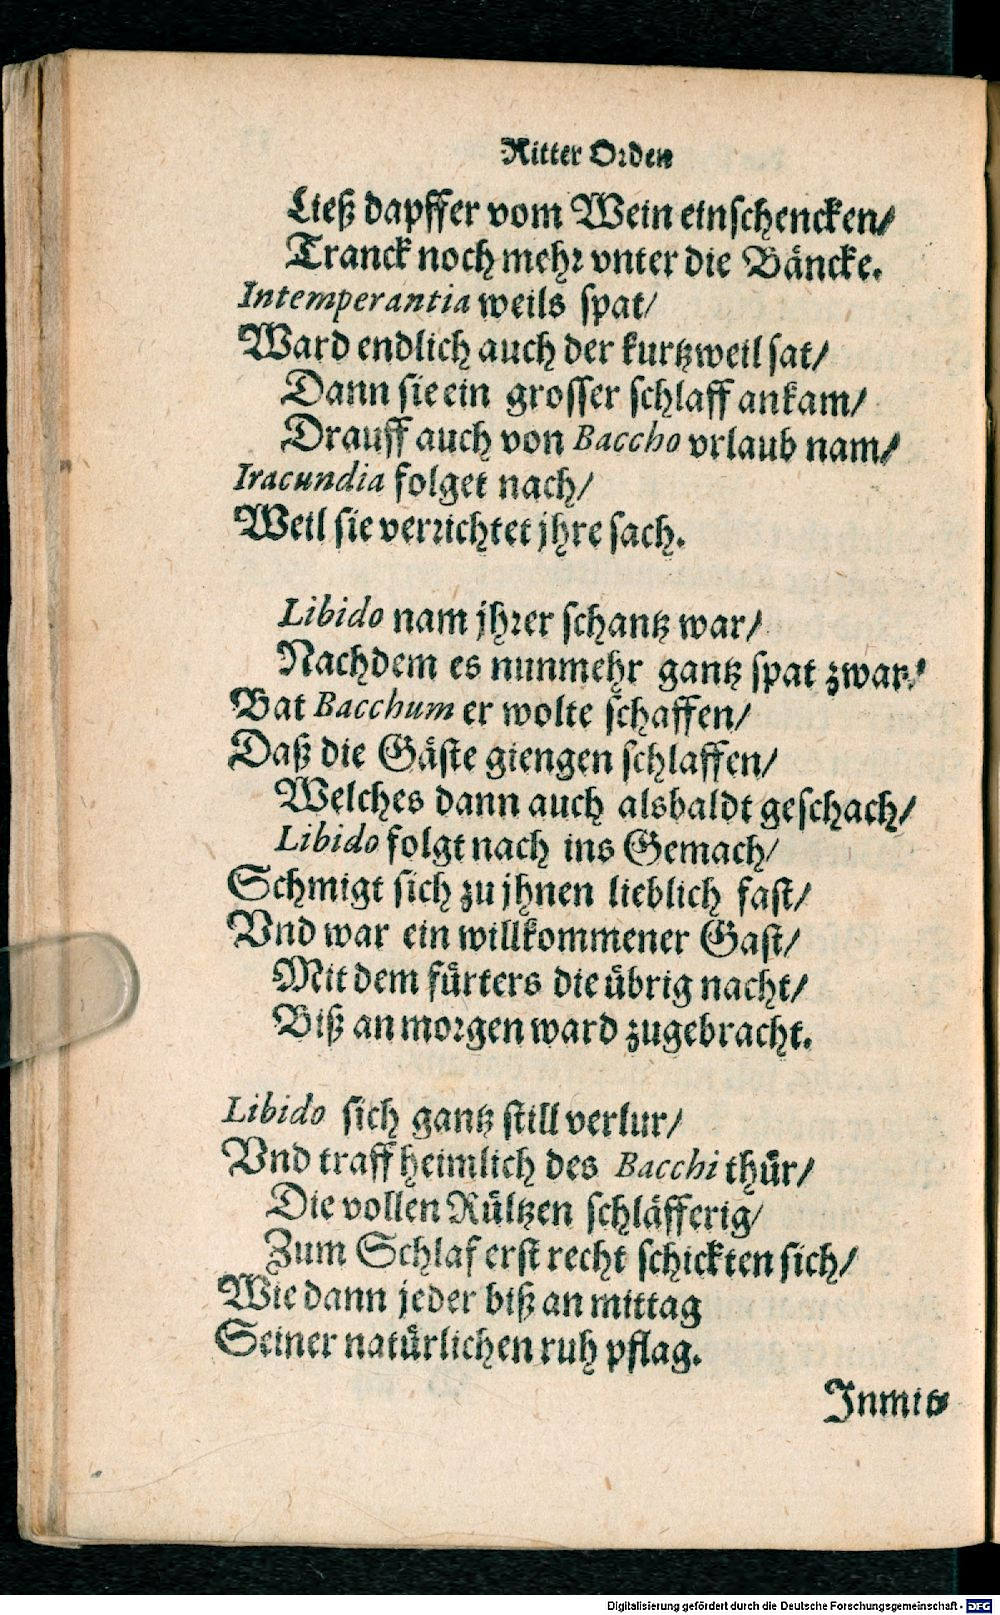 Ritter Orden
Ließ dapffer vom Wein einschencken/
Tranck noch mehr vnter die Bäncke.
Intemperantia weils spat/
Ward endlich auch der kurtzweil sat/
Dann sie ein grosser schlaff ankam/
Drauff auch von Baccho vrlaub nam/
Iracundia folget nach/
Weil sie verrichtet jhre sach.
Libido nam jhrer schantz war/
Nachdem es nunmehr gantz spat zwar/
Bat Bacchum er wolte schaffen/
Daß die Gäste giengen schlaffen/
Welches dann auch alsbaldt geschach/
Libido folgt nach ins Gemach/
Schmigt sich zu jhnen lieblich fast/
Vnd war ein willkommener Gast/
Mit dem fürters die übrig nacht/
Biß an morgen ward zugebracht.
Libido sich gantz still verlur/
Vnd traff heimlich des Bacchi thür/
Die vollen Rültzen schläfferig/
Zum Schlaf erst recht schickten sich/
Wie dann jeder biß an mittag
Seiner natürlichen ruh pflag.
Inmit-
Digitalisierung gefördert durch die Deutsche Forschungsgemeinschaft - DFG